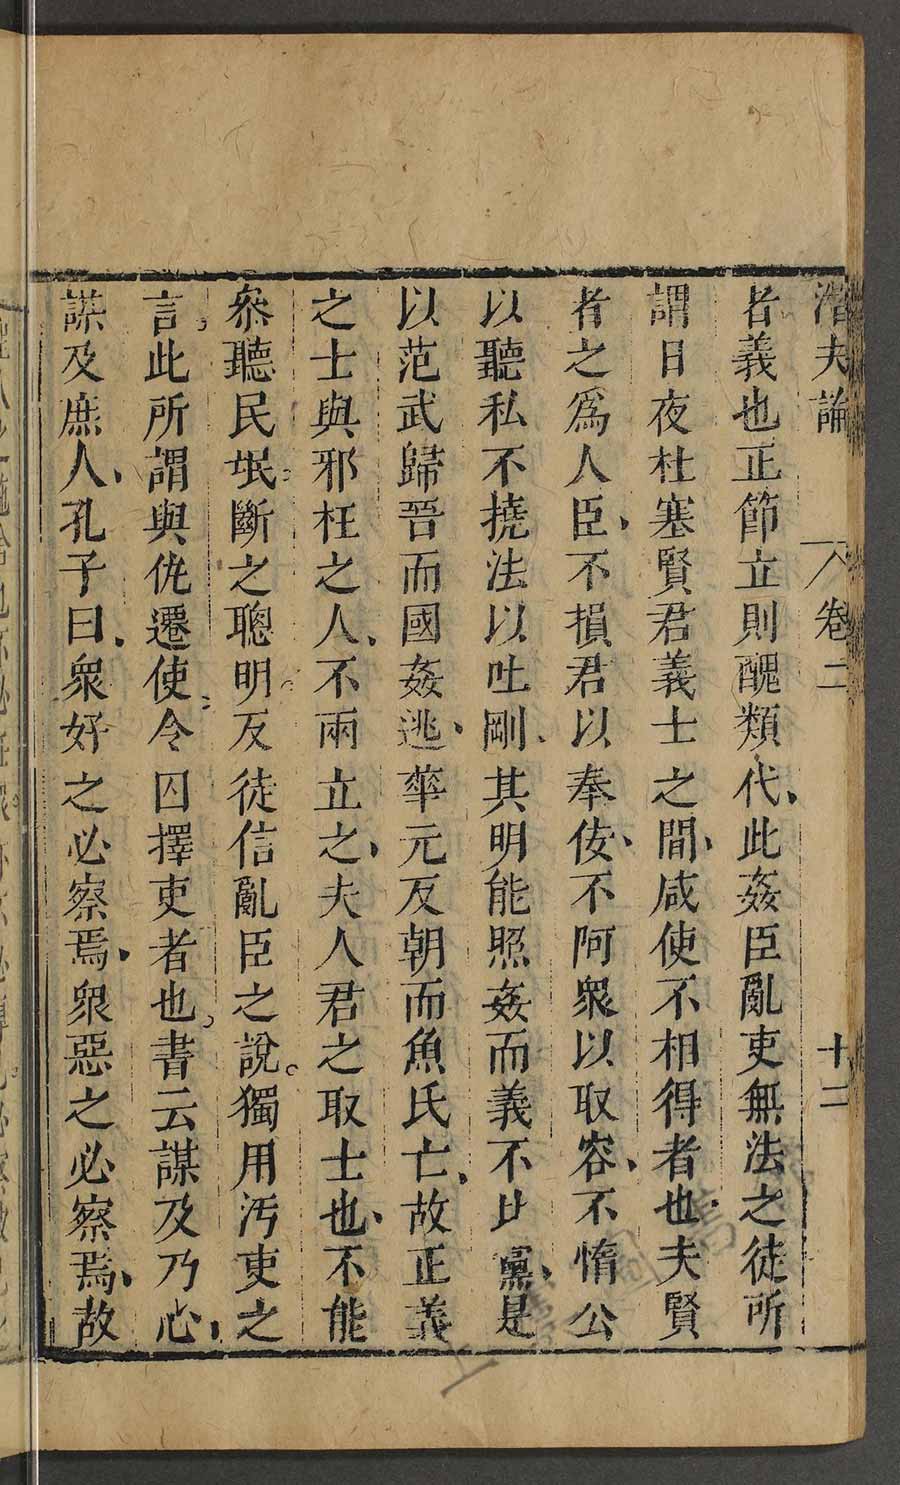 潛夫論 卷二 十二
者義也正節立則醜類代此姦臣亂吏無法之徒所
謂日夜杜塞賢君義士之間咸使不相得者也夫賢
者之爲人臣不損君以奉佞不阿衆以取容不惰公
以聽私不撓法以吐剛其明能照姦而義不比黨是
以范武歸晉而國姦逃華元反朝而魚氏亡故正義
之士與邪枉之人不兩立之夫人君之取士也不能
叅聽民氓斷之聰明反徒信亂臣之說獨用汚吏之
言此所謂與仇遷使令囚擇吏者也書云謀及乃心
謀及庶人孔子曰衆好之必察焉衆惡之必察焉故